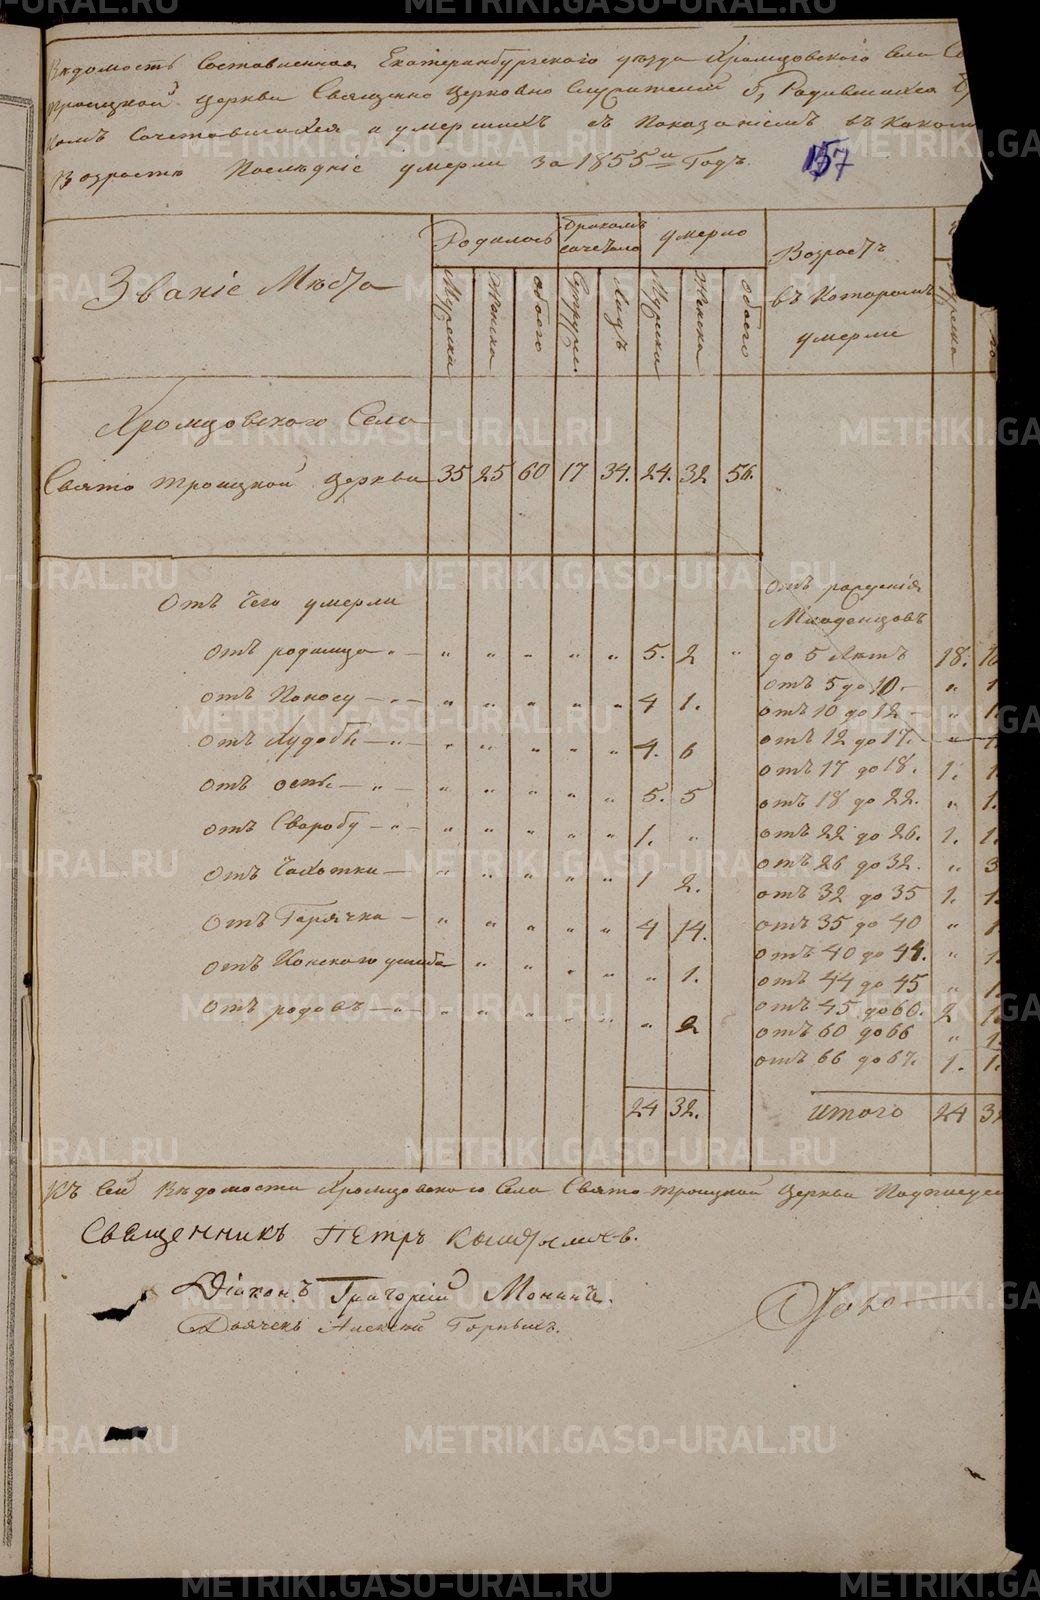 Вѣдомость Составленная Екатеринбургского уѣзда Хромцовского села Св
троицкой церкви Священно церковно Служителями О Родившихся Бра
комъ Сочетавшихся и умершихъ съ Показанiемъ въ какомъ
Возрастѣ Послѣднiе умерли за 1855й Годъ.
157
Званiе Мѣста
Родилось
Бракомъ сочетано
умерло
Возрастъ въ Которомъ умерли
Мужска
Женска
обоего
Супруж
Лицъ
Мужска
Женска
обоего
Мужска
Хромцовского Села
Свято троицкой церкви 35 25 60 17 34. 24. 32 56.
Отъ чего умерли
отъ родимца - " - " " " " " 5. 2 "
отъ Поносу - " - " " " " " 4 1.
отъ Худобы - " - " " " " " 4. 6
отъ оспы - " - " " " " " 5. 5
отъ Сваробу - " - " " " " " 1. "
отъ Чахотки - " " " " " 1 2.
отъ Горячки - " " " " " 4 14.
отъ Конского ушиба " " " " " 1.
отъ родовъ - " - " " " " " " 2
24 32.
отъ рожденiя
Младенцовъ
до 5 Лѣтъ 18. 1
отъ 5 до 10. - " 1
отъ 10 до 12 " 1.
отъ 12 до 17. - " - 1
отъ 17 до 18. 1. 1
отъ 18 до 22. " 1.
отъ 22 до 26. 1. 1.
отъ 26 до 32. " 3
отъ 32 до 35 1. 1.
отъ 35 до 40 " 1
отъ 40 до 44. " 1.
отъ 44 до 45 " 1.
отъ 45 до 60. 2 1
отъ 60 до 66 " 1.
отъ 66 до 67. 1. 1.
итого 24 32
Къ Сей Вѣдомости Хромцовского Села Свято троицкой Церкви Подписуем
Священникъ Петръ
Дiаконъ Григорiй Монинъ.
Дьячекъ Алексѣй
METRIKI.GASO-URAL.RU